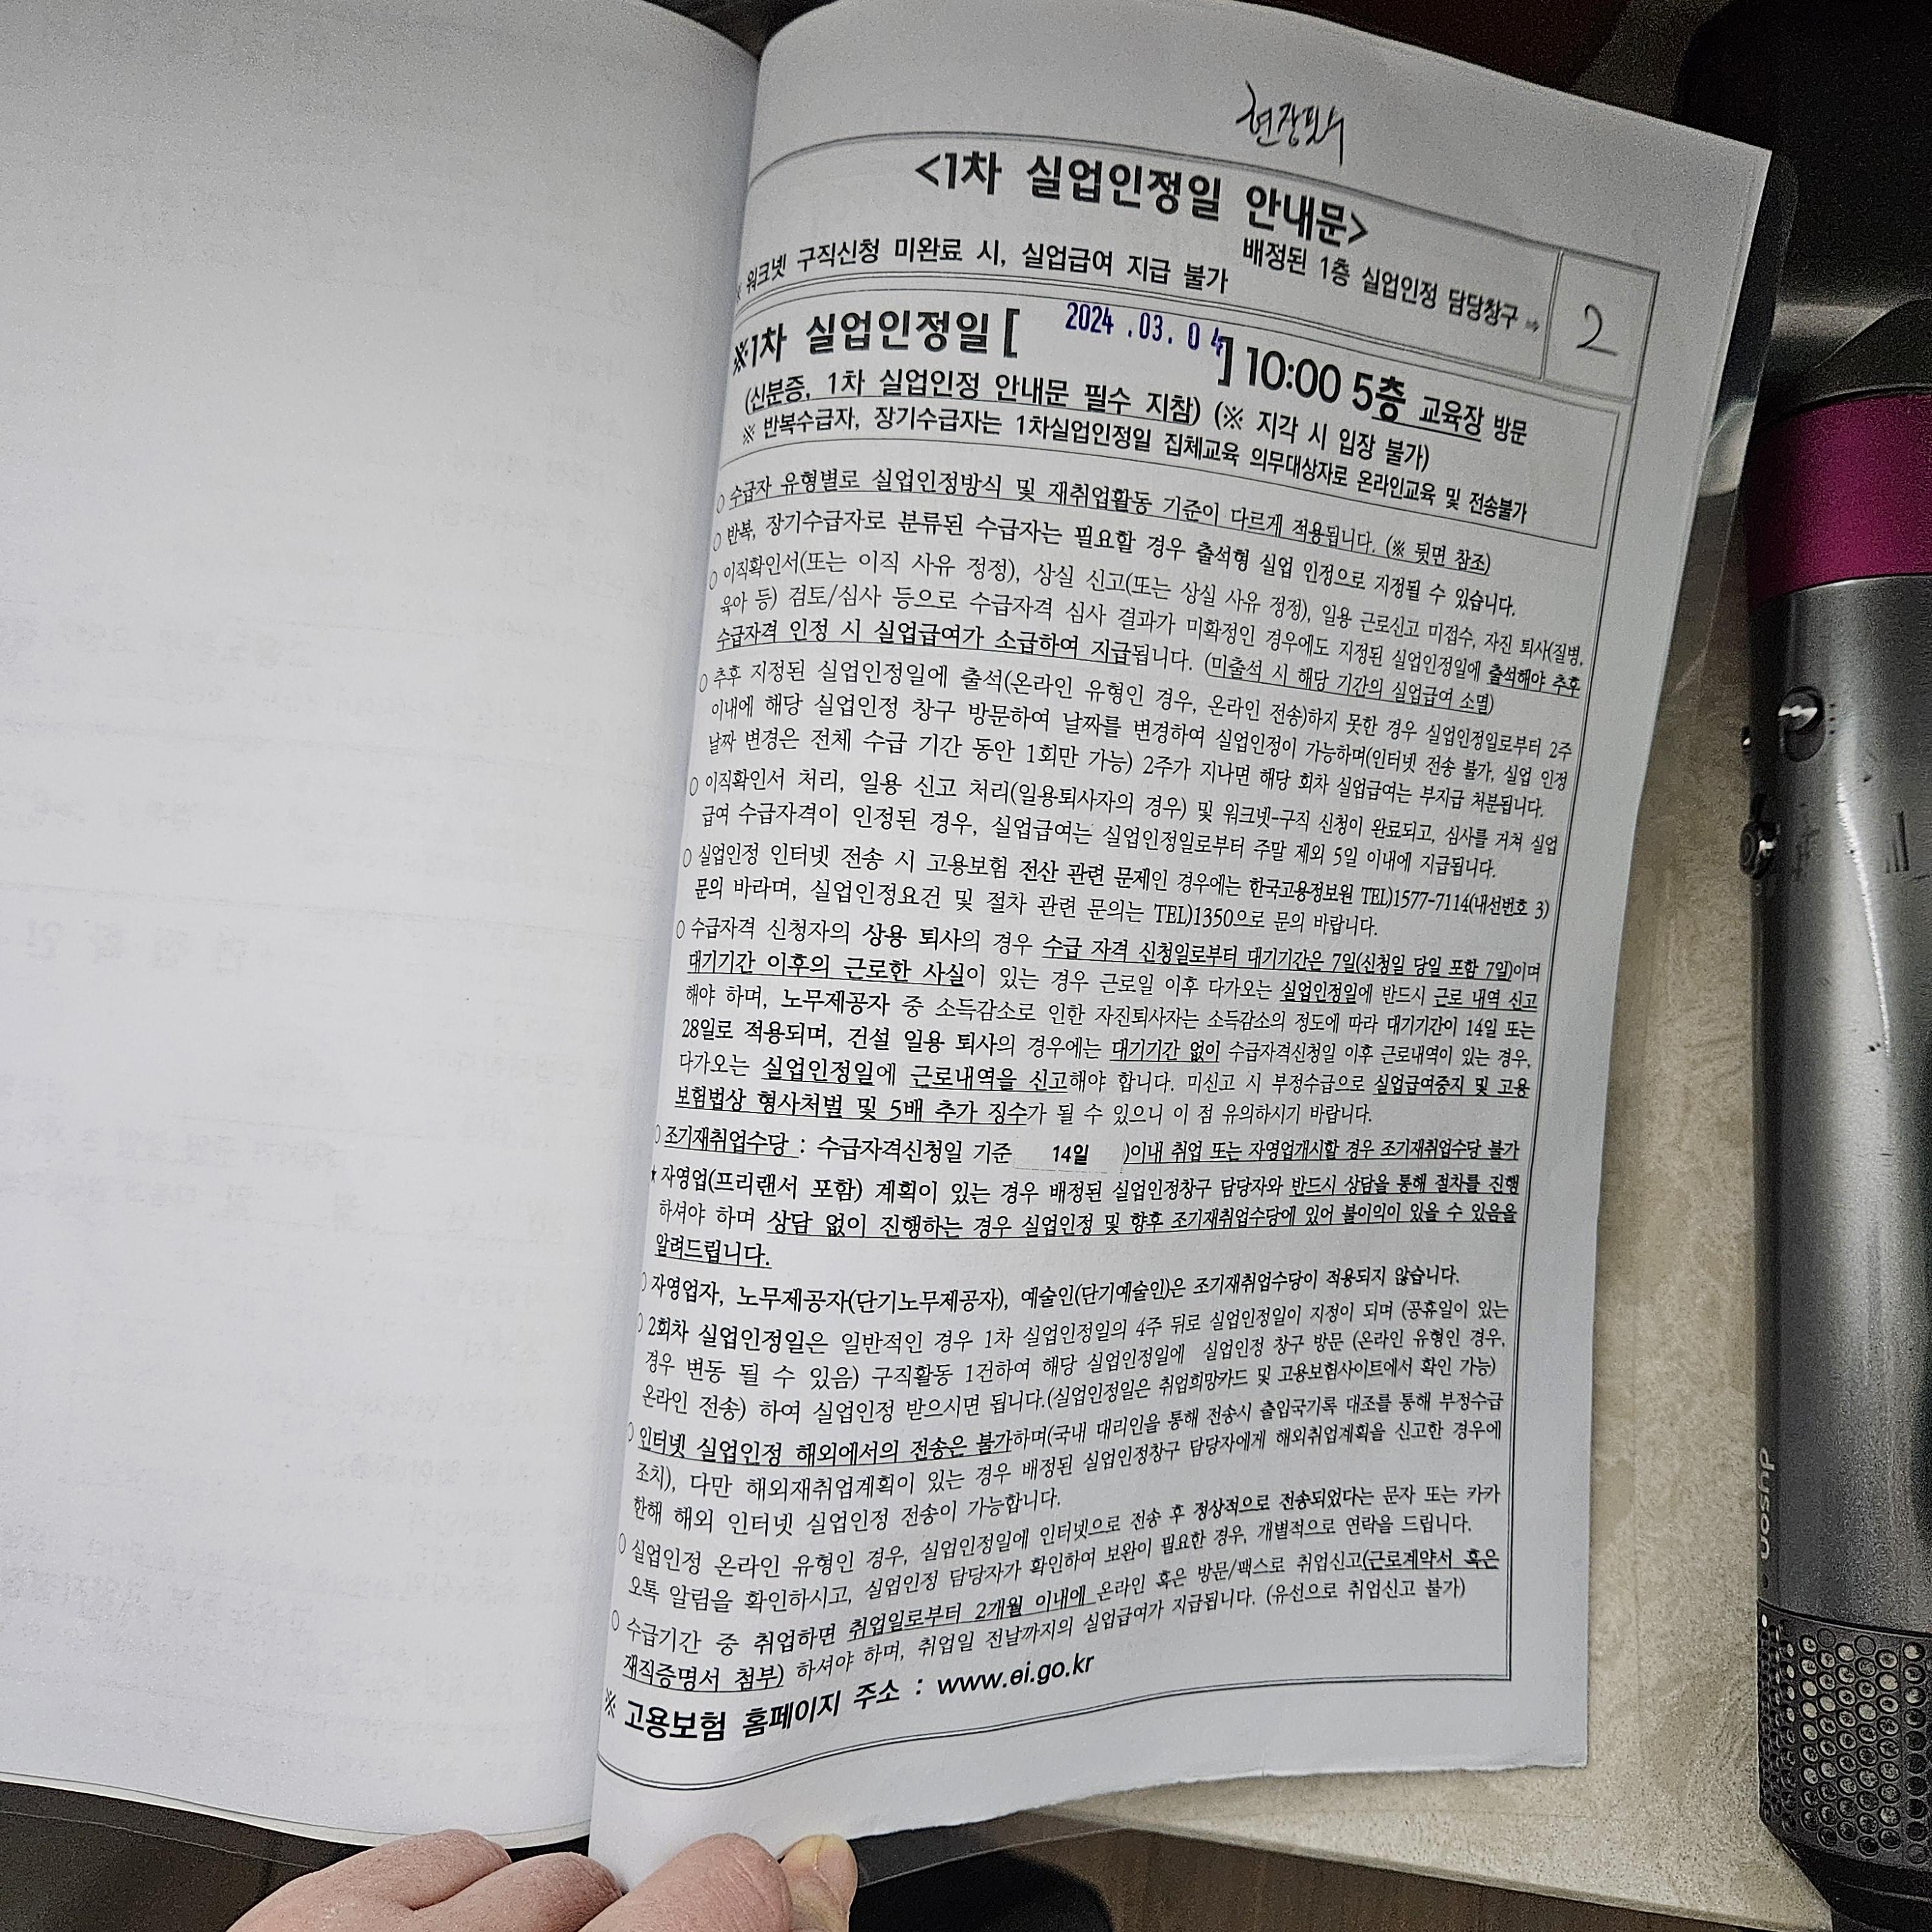 현장필수
<1차 실업인정일 안내문>
※ 워크넷 구직신청 미완료 시, 실업급여 지급 불가
배정된 1층 실업인정 담당창구 ⇨
2
※1차 실업인정일 [ 2024.03.04 ] 10:00 5층 교육장 방문
(신분증, 1차 실업인정 안내문 필수 지참) (※ 지각 시 입장 불가)
※ 반복수급자, 장기수급자는 1차실업인정일 집체교육 의무대상자로 온라인교육 및 전송불가
○ 수급자 유형별로 실업인정방식 및 재취업활동 기준이 다르게 적용됩니다. (※ 뒷면 참조)
○ 반복, 장기수급자로 분류된 수급자는 필요할 경우 출석형 실업 인정으로 지정될 수 있습니다.
○ 이직확인서(또는 이직 사유 정정), 상실 신고(또는 상실 사유 정정), 일용 근로신고 미접수, 자진 퇴사(질병,
육아 등) 검토/심사 등으로 수급자격 심사 결과가 미확정인 경우에도 지정된 실업인정일에 출석해야 추후
수급자격 인정 시 실업급여가 소급하여 지급됩니다. (미출석 시 해당 기간의 실업급여 소멸)
○ 추후 지정된 실업인정일에 출석(온라인 유형인 경우, 온라인 전송)하지 못한 경우 실업인정일로부터 2주
이내에 해당 실업인정 창구 방문하여 날짜를 변경하여 실업인정이 가능하며(인터넷 전송 불가, 실업 인정
날짜 변경은 전체 수급 기간 동안 1회만 가능) 2주가 지나면 해당 회차 실업급여는 부지급 처분됩니다.
○ 이직확인서 처리, 일용 신고 처리(일용퇴사자의 경우) 및 워크넷-구직 신청이 완료되고, 심사를 거쳐 실업
급여 수급자격이 인정된 경우, 실업급여는 실업인정일로부터 주말 제외 5일 이내에 지급됩니다.
○ 실업인정 인터넷 전송 시 고용보험 전산 관련 문제인 경우에는 한국고용정보원 TEL)1577-7114(내선번호 3)
문의 바라며, 실업인정요건 및 절차 관련 문의는 TEL)1350으로 문의 바랍니다.
○ 수급자격 신청자의 상용 퇴사의 경우 수급 자격 신청일로부터 대기기간은 7일(신청일 당일 포함 7일)이며
대기기간 이후의 근로한 사실이 있는 경우 근로일 이후 다가오는 실업인정일에 반드시 근로 내역 신고
해야 하며, 노무제공자 중 소득감소로 인한 자진퇴사자는 소득감소의 정도에 따라 대기기간이 14일 또는
28일로 적용되며, 건설 일용 퇴사의 경우에는 대기기간 없이 수급자격신청일 이후 근로내역이 있는 경우,
다가오는 실업인정일에 근로내역을 신고해야 합니다. 미신고 시 부정수급으로 실업급여중지 및 고용
보험법상 형사처벌 및 5배 추가 징수가 될 수 있으니 이 점 유의하시기 바랍니다.
○ 조기재취업수당 : 수급자격신청일 기준 14일 )이내 취업 또는 자영업개시할 경우 조기재취업수당 불가
★ 자영업(프리랜서 포함) 계획이 있는 경우 배정된 실업인정창구 담당자와 반드시 상담을 통해 절차를 진행
하셔야 하며 상담 없이 진행하는 경우 실업인정 및 향후 조기재취업수당에 있어 불이익이 있을 수 있음을
알려드립니다.
○ 자영업자, 노무제공자(단기노무제공자), 예술인(단기예술인)은 조기재취업수당이 적용되지 않습니다.
○ 2회차 실업인정일은 일반적인 경우 1차 실업인정일의 4주 뒤로 실업인정일이 지정이 되며 (공휴일이 있는
경우 변동 될 수 있음) 구직활동 1건하여 해당 실업인정일에 실업인정 창구 방문 (온라인 유형인 경우,
온라인 전송) 하여 실업인정 받으시면 됩니다.(실업인정일은 취업희망카드 및 고용보험사이트에서 확인 가능)
○ 인터넷 실업인정 해외에서의 전송은 불가하며(국내 대리인을 통해 전송시 출입국기록 대조를 통해 부정수급
조치), 다만 해외재취업계획이 있는 경우 배정된 실업인정창구 담당자에게 해외취업계획을 신고한 경우에
한해 해외 인터넷 실업인정 전송이 가능합니다.
○ 실업인정 온라인 유형인 경우, 실업인정일에 인터넷으로 전송 후 정상적으로 전송되었다는 문자 또는 카카
오톡 알림을 확인하시고, 실업인정 담당자가 확인하여 보완이 필요한 경우, 개별적으로 연락을 드립니다.
○ 수급기간 중 취업하면 취업일로부터 2개월 이내에 온라인 혹은 방문/팩스로 취업신고(근로계약서 혹은
재직증명서 첨부) 하셔야 하며, 취업일 전날까지의 실업급여가 지급됩니다. (유선으로 취업신고 불가)
※ 고용보험 홈페이지 주소 : www.ei.go.kr
dyson